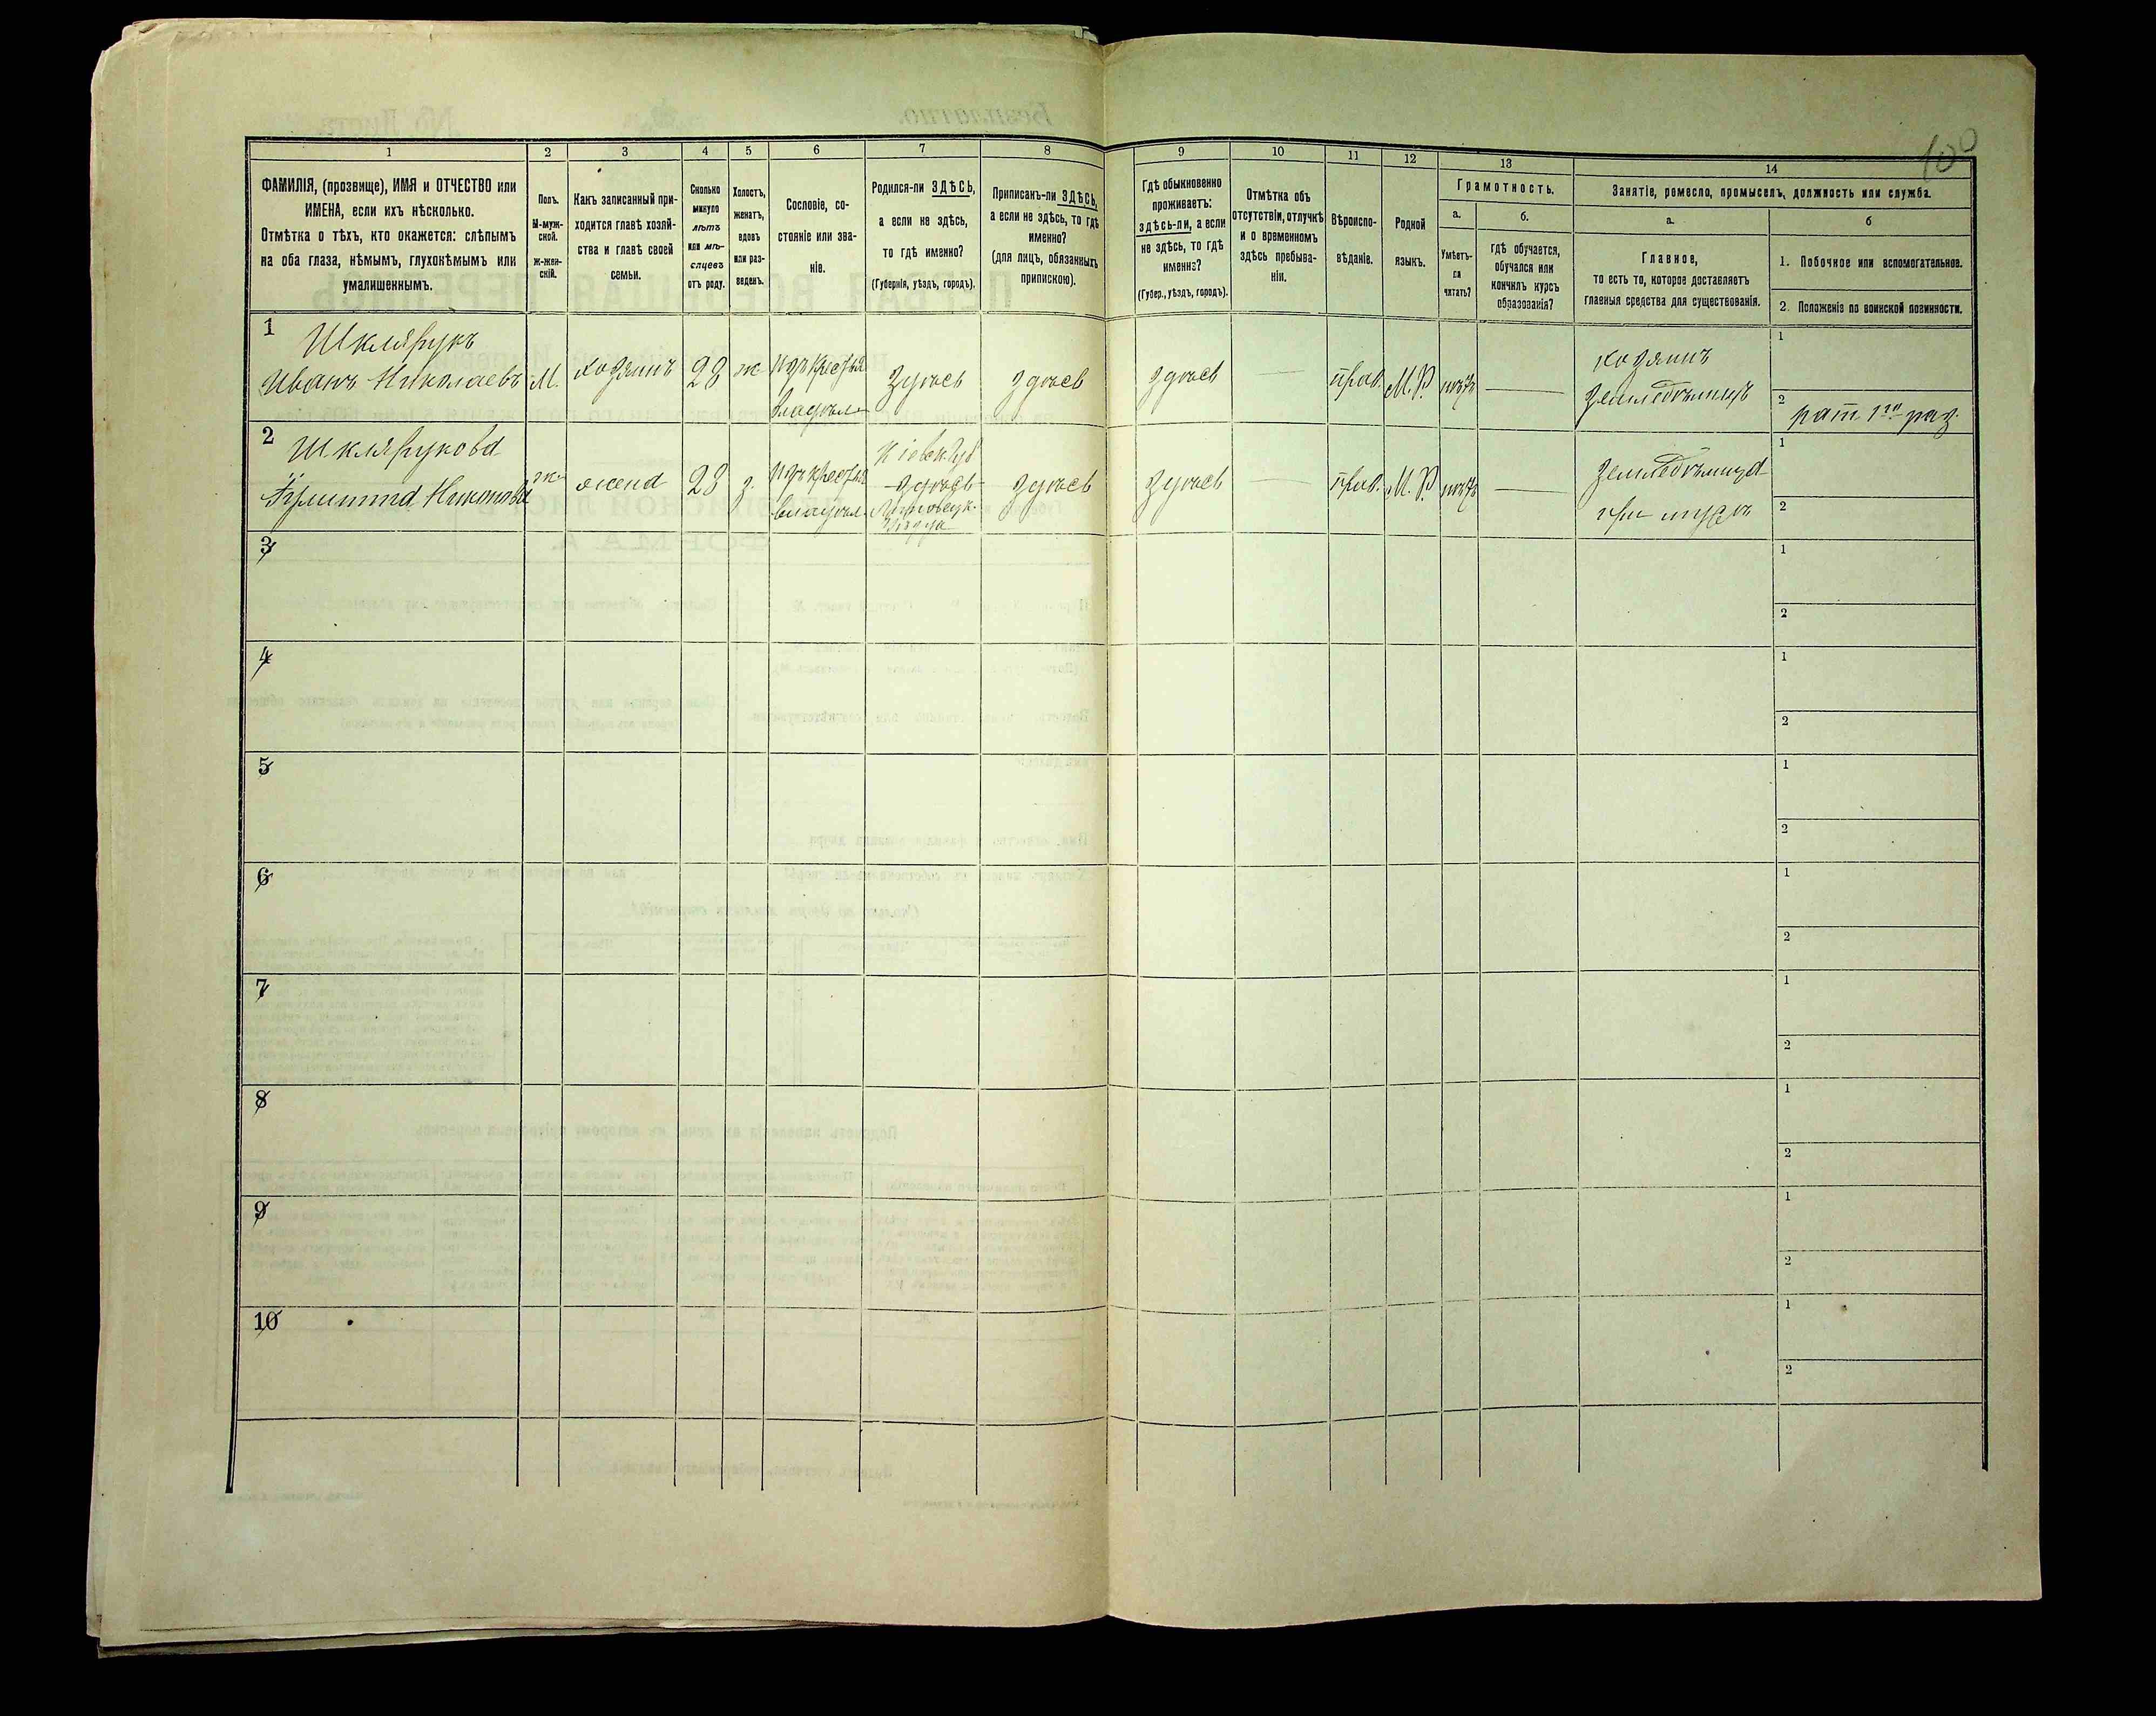 100
1
2
3
4
5
6
7
8
9
10
11
12
13
14
ФАМИЛІЯ, (прозвище), ИМЯ и ОТЧЕСТВО или
ИМЕНА, если ихъ нѣсколько.
Отмѣтка о тѣхъ, кто окажется: слѣпымъ
на оба глаза, нѣмымъ, глухонѣмымъ или
умалишеннымъ.
Полъ.
М-муж-
ской.
ж-жен-
скій.
Какъ записанный при-
ходится главѣ хозяй-
ства и главѣ своей
семьи.
Сколько
минуло
лѣтъ
или мѣ-
сяцевъ
отъ роду.
Холостъ,
женатъ,
вдовъ
или раз-
веденъ.
Сословіе, со-
стояніе или зва-
ніе.
Родился-ли ЗДѢСЬ,
а если не здѣсь,
то гдѣ именно?
(Губернія, уѣздъ, городъ).
Приписанъ-ли ЗДѢСЬ,
а если не здѣсь, то гдѣ
именно?
(для лицъ, обязанныхъ
припискою).
Гдѣ обыкновенно
проживаетъ:
здѣсь-ли, а если
не здѣсь, то гдѣ
именно?
(Губер., уѣздъ, городъ).
Отмѣтка объ
отсутствіи, отлучкѣ
и о временномъ
здѣсь пребыва-
ніи.
Вѣроиспо-
вѣданіе.
Родной
языкъ.
Грамотность.
а.
Умѣетъ-
ли
читать?
б.
гдѣ обучается,
обучался или
кончилъ курсъ
образованія?
Занятіе, ремесло, промыселъ, должность или служба.
а.
Главное,
то есть то, которое доставляетъ
главныя средства для существованія.
б
1. Побочное или вспомогательное.
2. Положеніе по воинской повинности.
1
Шклярукъ
Иванъ Николаевъ
М.
хозяинъ
28
ж
изъ крестья
владѣл
здѣсь
здѣсь
здѣсь
—
прав.
М.Р.
нѣтъ
—
хозяинъ
земледѣлецъ
1
2
рат. 1го раз.
2
Шклярукова
ж
жена
28
з.
изъ крестья
владѣл.
Кіевск. губ
здѣсь
Липовецк.
Уѣзда
здѣсь
здѣсь
—
прав.
М.Р.
нѣтъ
—
земледѣлица
при мужѣ
1
2
3
1
2
4
1
2
5
1
2
6
1
2
7
1
2
8
1
2
9
1
2
10
1
2